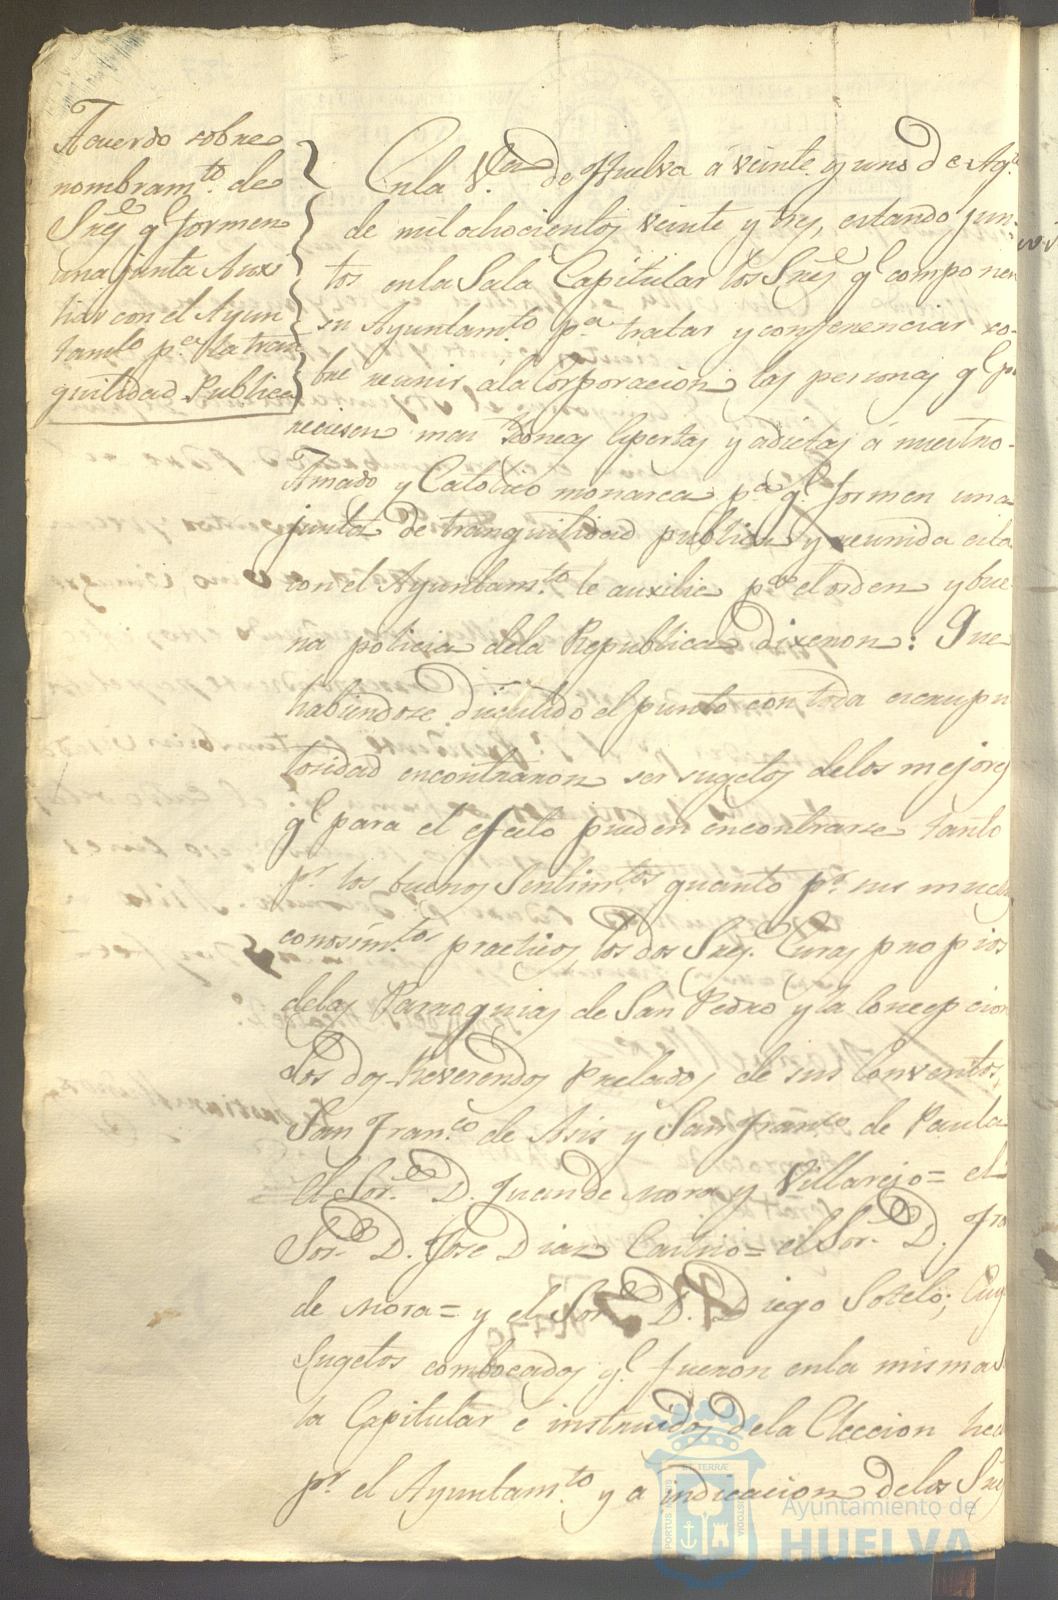 Acuerdo sobre
nombram.to de
S.res q.e formen
una junta Aux
liar con el Ayun
tam.to p.a la tran
quilidad Publica
En la V.a de Huelva á veinte y uno de Ag.to
de mil ochocientos veinte y tres, estando jun-
tos en la Sala Capitular los S.res q.e componen
su Ayuntam.to p.a tratar y conferenciar so-
bre reunir á la Corporacion las personas q.e pa
reciesen mas idoneas expertas y adictas á nuestro
Amado y Catolico monarca p.a q.e formen una
junta de tranquilidad publica y reunida esta
con el Ayuntam.to le auxilie p.a el orden y bue
na policia de la Republica dixeron: Que
habiendose discutido el punto con toda escrupu
losidad encontraron ser sugetos de los mejores
q.e para el efecto pueden encontrarse tanto
p.r los buenos sentim.tos quanto p.r sus muchos
conosim.tos practicos, los dos S.res Curas propios
de las Parroquias de San Pedro y la Concepcion
los dos Reverendos Prelados de sus Conventos,
San Fran.co de Asis y San Fran.co de Paula
el Sor. D. Juan de Mora y Villarejo = el
Sor. D. Jose Diaz = el Sor. D. Fra
de Mora = y el Sor. D. Diego Sotelo; Cuyos
sugetos combocados y q.e fueron en la misma
la Capitular é instruidos de la Eleccion hecha
p.r el Ayuntam.to y a indicacion de los S.res
PORTUS MARIS
ET TERRÆ
CUSTODIA
Ayuntamiento de
HUELVA